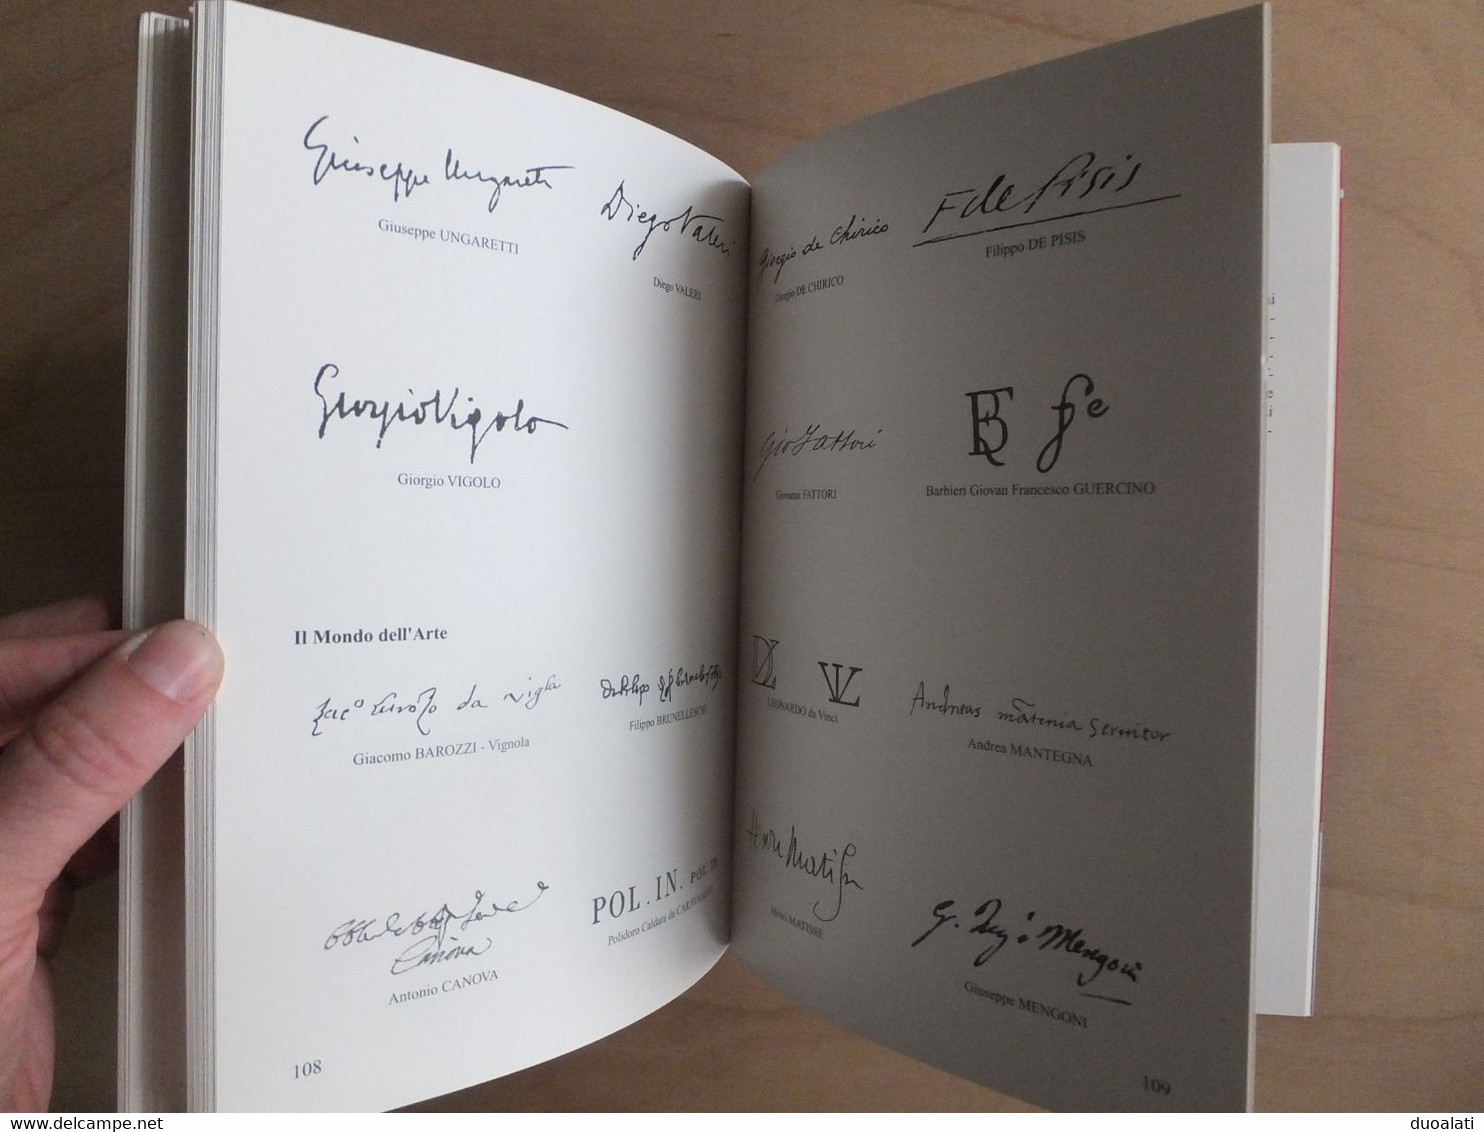 Giuseppe Ungaretti
Giuseppe UNGARETTI
Diego Valeri
Diego VALERI
Giorgio Vigolo
Giorgio VIGOLO
Il Mondo dell'Arte
Giacomo BAROZZI - Vignola
Filippo BRUNELLESCHI
Canova
Antonio CANOVA
POL . IN . POL . IN
Polidoro Caldara da CARAVAGGIO
108
Giorgio de Chirico
Giorgio DE CHIRICO
F de Pisis
Filippo DE PISIS
Gio Fattori
Giovanni FATTORI
Barbieri Giovan Francesco GUERCINO
LEONARDO da Vinci
Andrea MANTEGNA
Henri Matisse
Henri MATISSE
Mengoni
Giuseppe MENGONI
109
www.delcampe.net
duoalati